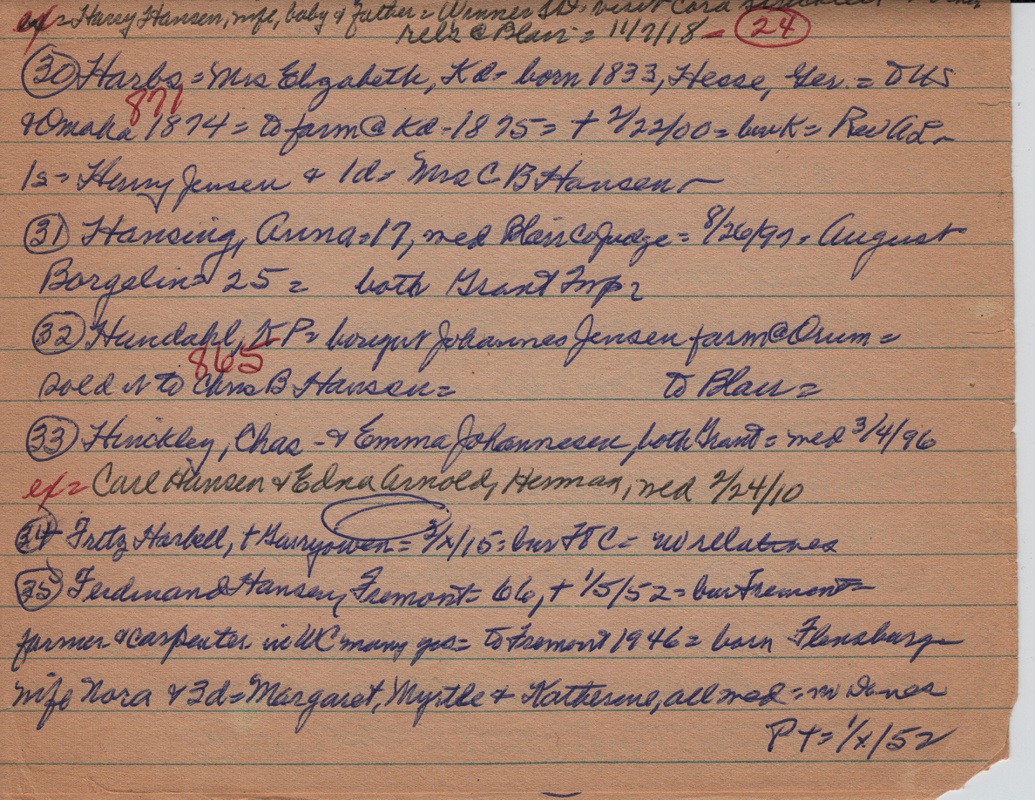 ex = Harry Hansen, wife, baby & father = Winner SD = visit Cora
rel's @ Blair = 11/7/18 - 24
30 Harbs = Mrs Elizabeth, Kd = born 1833, Hesse, Ger. = to US
871
& Omaha 1874 = to farm @ Kd - 1875 = + 2/22/00 = bur K = Rev AL -
1s = Henry Jensen & 1d = Mrs C B Hansen -
31 Hansing, Anna = 17, med Blair Co Judge = 8/26/97 = August
Borgelin = 25 = both Grant Twp
32 Hundahl, KP = bought Johannes Jensen farm @ Orum =
865
sold it to Chris B Hansen = to Blair =
33 Hinckley, Chas - & Emma Johannesen, both Grant = med 3/4/96
ex = Carl Hansen & Edna Arnold, Herman, med 2/24/10
34 Fritz Harbell, + Garryowen = 2/x/15 = bur Ft C = no relatives
35 Ferdinand Hansen, Fremont = 66, + 1/5/52 = bur Fremont =
farmer & carpenter in WC many yrs = to Fremont 1946 = born Flensburg
wife Nora & 3d = Margaret, Myrtle & Katherine, all med =
PT = 1/x/52